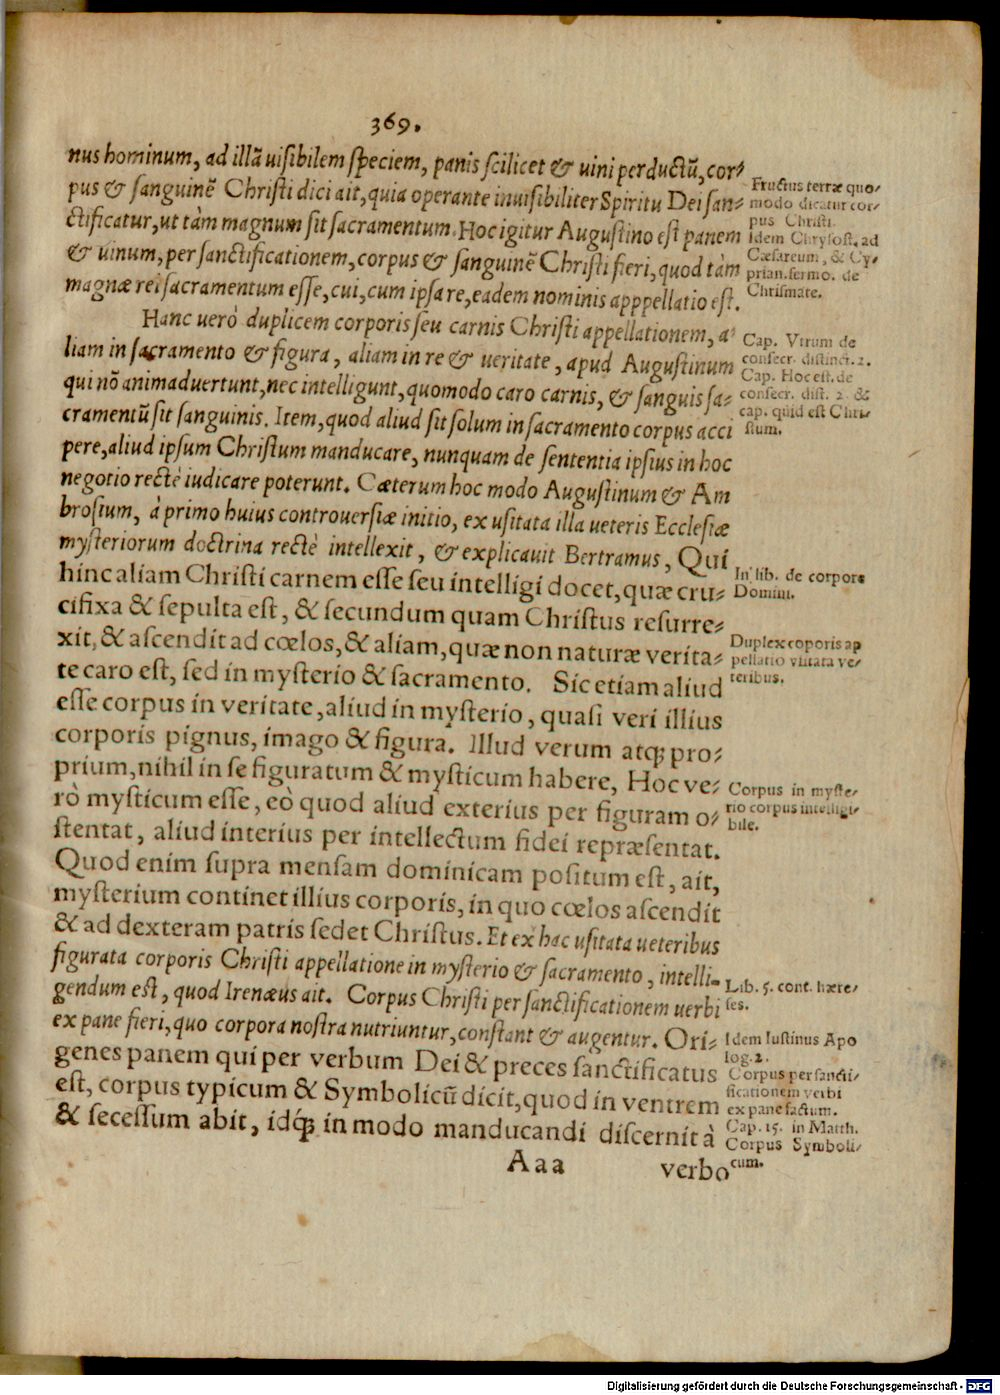 369.
nus hominum, ad illã uisibilem speciem, panis scilicet & uini perductũ, cor-
pus & sanguinẽ Christi dici ait, quia operante inuisibiliter Spiritu Dei san-
ctificatur, ut tàm magnum sit sacramentum. Hoc igitur Augustino est panem
& uinum, per sanctificationem, corpus & sanguinẽ Christi fieri, quod tàm
magnæ rei sacramentum esse, cui, cum ipsa re, eadem nominis apppellatio est.
Hanc uerò duplicem corporis seu carnis Christi appellationem, a-
liam in sacramento & figura, aliam in re & ueritate, apud Augustinum
qui nõ animaduertunt, nec intelligunt, quomodo caro carnis, & sanguis sa-
cramentũ sit sanguinis. Item, quod aliud sit solum in sacramento corpus acci
pere, aliud ipsum Christum manducare, nunquam de sententia ipsius in hoc
negotio rectè iudicare poterunt. Cæterum hoc modo Augustinum & Am
brosium, à primo huius controuersiæ initio, ex usitata illa ueteris Ecclesiæ
mysteriorum doctrina rectè intellexit, & explicauit Bertramus, Qui
hinc aliam Christi carnem esse seu intelligi docet, quæ cru-
cifixa & sepulta est, & secundum quam Christus resurre-
xit, & ascendit ad cœlos, & aliam, quæ non naturæ verita-
te caro est, sed in mysterio & sacramento. Sic etiam aliud
esse corpus in veritate, aliud in mysterio, quasi veri illius
corporis pignus, imago & figura. Illud verum atq; pro-
prium, nihil in se figuratum & mysticum habere, Hoc ve-
rò mysticum esse, eò quod aliud exterius per figuram o-
stentat, aliud interius per intellectum fidei repræsentat.
Quod enim supra mensam dominicam positum est, ait,
mysterium continet illius corporis, in quo cœlos ascendit
& ad dexteram patris sedet Christus. Et ex hac usitata ueteribus
figurata corporis Christi appellatione in mysterio & sacramento, intelli-
gendum est, quod Irenæus ait. Corpus Christi per sanctificationem uerbi
ex pane fieri, quo corpora nostra nutriuntur, constant & augentur. Ori-
genes panem qui per verbum Dei & preces sanctificatus
est, corpus typicum & Symbolicũ dicit, quod in ventrem
& secessum abit, idq; in modo manducandi discernit à
Aaa verbo
Fructus terræ quo-
modo dicatur cor-
pus Christi.
Idem Chrysost. ad
Cæsareum, & Cy-
prian. sermo. de
Chrismate.
Cap. Vtrum de
consecr. distinct. 2.
Cap. Hoc est. de
consecr. dist. 2. &
cap. quid est Chri-
stum.
In lib. de corpore
Domini.
Duplex coporis ap
pellatio vsitata ve-
teribus.
Corpus in myste-
rio corpus intelligi-
bile.
Lib. 5. cont. hære-
ses.
Idem Iustinus Apo
log. 2.
Corpus per sancti-
ficationem verbi
ex pane factum.
Cap. 15. in Matth.
Corpus Symboli-
cum.
Digitalisierung gefördert durch die Deutsche Forschungsgemeinschaft - DFG